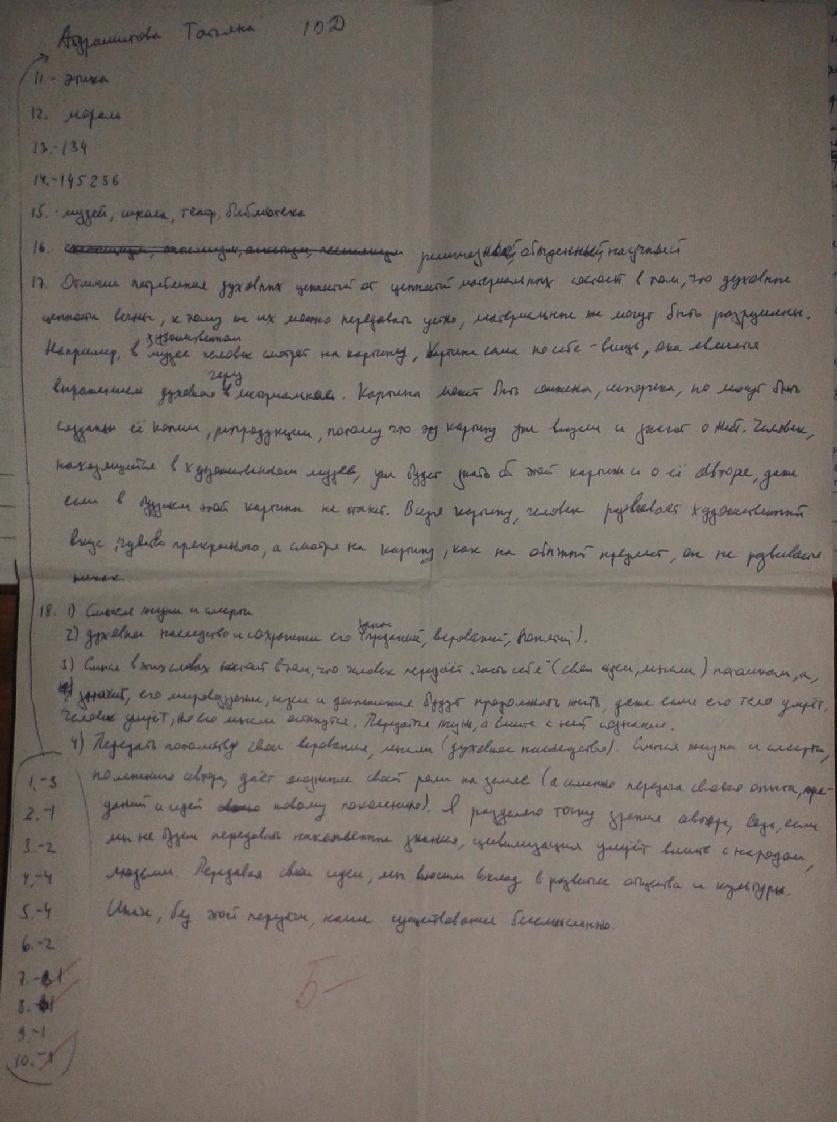 Татьяна 10Д
11.- этика
12. мораль
13.-134
14.-145236
15.- музей, школа, театр, библиотека
16. религиозный обыденный научный
17. Отличие потребления духовных ценностей от ценностей материальных состоит в том, что духовные
ценности вечны, к тому же их можно передавать устно, материальные же могут быть разрушены.
Например, в художественном музее человек смотрит на картину, Картина сама по себе - вещь, она является
выражением духовное через материальное. Картина может быть сожжена, испорчена, но могут быть
созданы её копии, репродукции, потому что эту картину уже видели и знают о ней. Человек,
находящийся в художественном музее, уже будет знать об этой картине и о её авторе, даже
если в будущем этой картины не станет. Видя картину, человек развивает художественный
вкус, чувство прекрасного, а смотря на картину, как на обычный предмет, он не развивается
никак.
18. 1) Смысл жизни и смерти
2) духовное наследство и сохранении его (преданий, верований, понятий).
3) Смысл в этих словах состоит в том, что человек передаёт "часть себя" (свои идеи, мысли) потомкам, а,
значит, его мировоззрение, идеи и достижения будут продолжать жить, даже если его тело умрёт.
Человек умрёт, но его мысли останутся. Передаётся жизнь, а вместе с ней сознание.
4) Передать потомству свои верования, мысли (духовное наследство). Смысл жизни и смерти,
по мнению автора, даёт осознание своей роли на земле (а именно передача своего опыта, пре-
даний и идей новому поколению). Я разделяю точку зрения автора, ведь, если
мы не будем передавать накопленные знания, цивилизация умрёт вместе с народом,
людьми. Передавая свои идеи, мы вносим вклад в развитие общества и культуры.
Итак, без этой передачи, наше существование бессмысленно.
1.-3
2.-1
3.-2
4.-4
5.-4
6.-2
7.-1
8.-1
9.-1
10.-1
5-